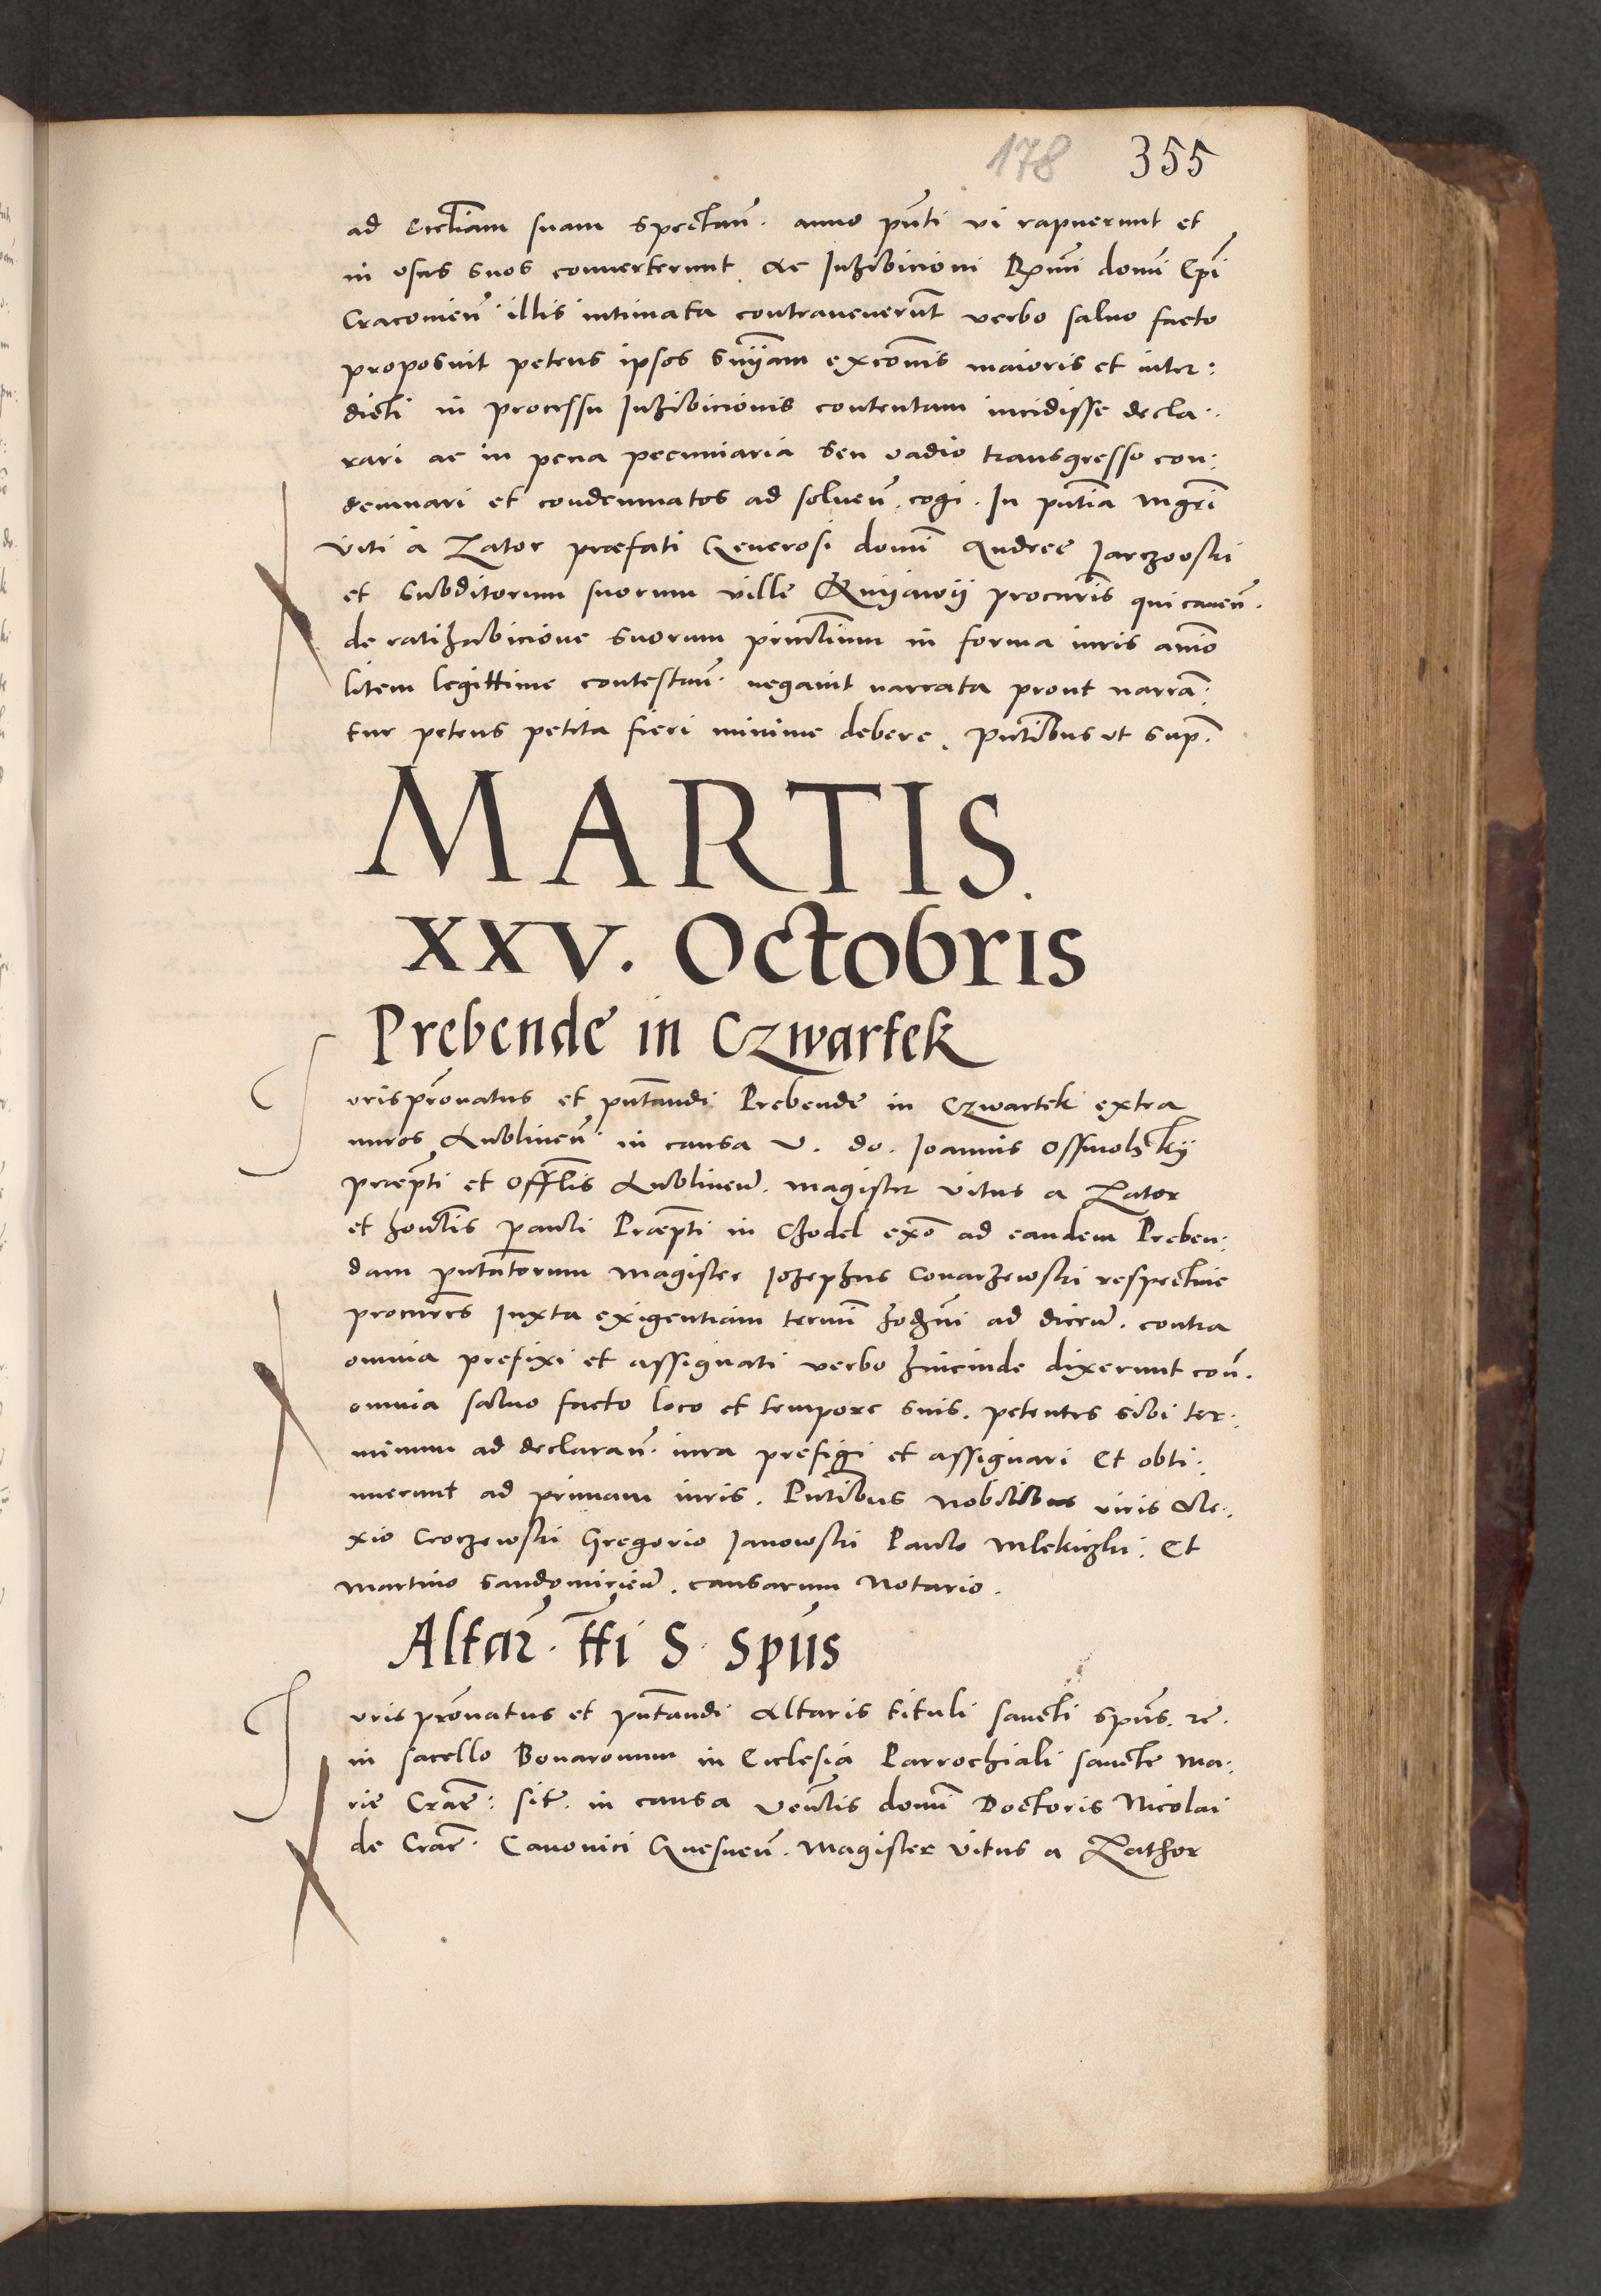 178 355
ad Eccliam suam spectan̄. anno pn̄ti vi rapuerunt et
in vsus suos conuerterunt. Ac Inhibicioni Rx̄mi domi Ep̄i
Cracouien̄ illis intimata contrauenerūnt verbo saluo facto
proposuit petens ipsos sn̄iam excōmis maioris et inter:
dicti in processu Inhibicionis contentam incidisse decla:
rari ac in pena pecuniaria seu vadio transgresso con:
demnari et condemnatos ad soluen̄. cogi. In pn̄tia Mgr̄i
Viti a Zator præfati Generosi domī Andree Jarczowski
et subditorum suorum ville Kuijawij procur̄is qui cauen̄.
de ratihabicione suorum prin̄clium in forma iuris anīo
litem legittime contestan̄. negauit narrata prout narrā:
tur petens petita fieri minime debere. Pn̄tibus vt sup̄.
MARTIS.
XXV. Octobris
Prebende in Czwartek
Jurisprōnatus et pn̄tandi Prebende in Czwartek extra
muros Lublinen̄. in causa V. do. Joannis Ossmolskij
præp̄ti et Offlīs Lublinen̄. Magister Vitus a Zator
et honlīs Pauli Præp̄ti in Chodel ex̄o ad eandem Preben:
dam pn̄tatorum Magister Jozephus Conarzewski respectiue
procur̄es Juxta exigentiam termī hodn̄i ad dicen̄. contra
omnia prefixi et assignati verbo hincinde dixerunt con̄.
omnia saluo facto loco et tempore suis. petentes sibi ter:
minum ad declaran̄. iura prefigi et assignari Et obti:
nuerunt ad primam iuris. Pn̄tibus Nobilibus viris Ale:
xio Croczewski Gregorio Janowski Paulo Mlekiczki. Et
Martino Sandomirien̄. causarum Notario.
Altar̄. tt̄i S. Spūs
Jurisprōnatus et pn̄tandi Altaris tituli sancti Spūs. rē.
in sacello Bonaronum in Ecclesia Parrochiali sancte Ma:
rie Crac̄: sit̄. in causa Ven̄lis domī Doctoris Nicolai
de Crac̄. Canonici Gnesnen̄. Magister Vitus a Zathor